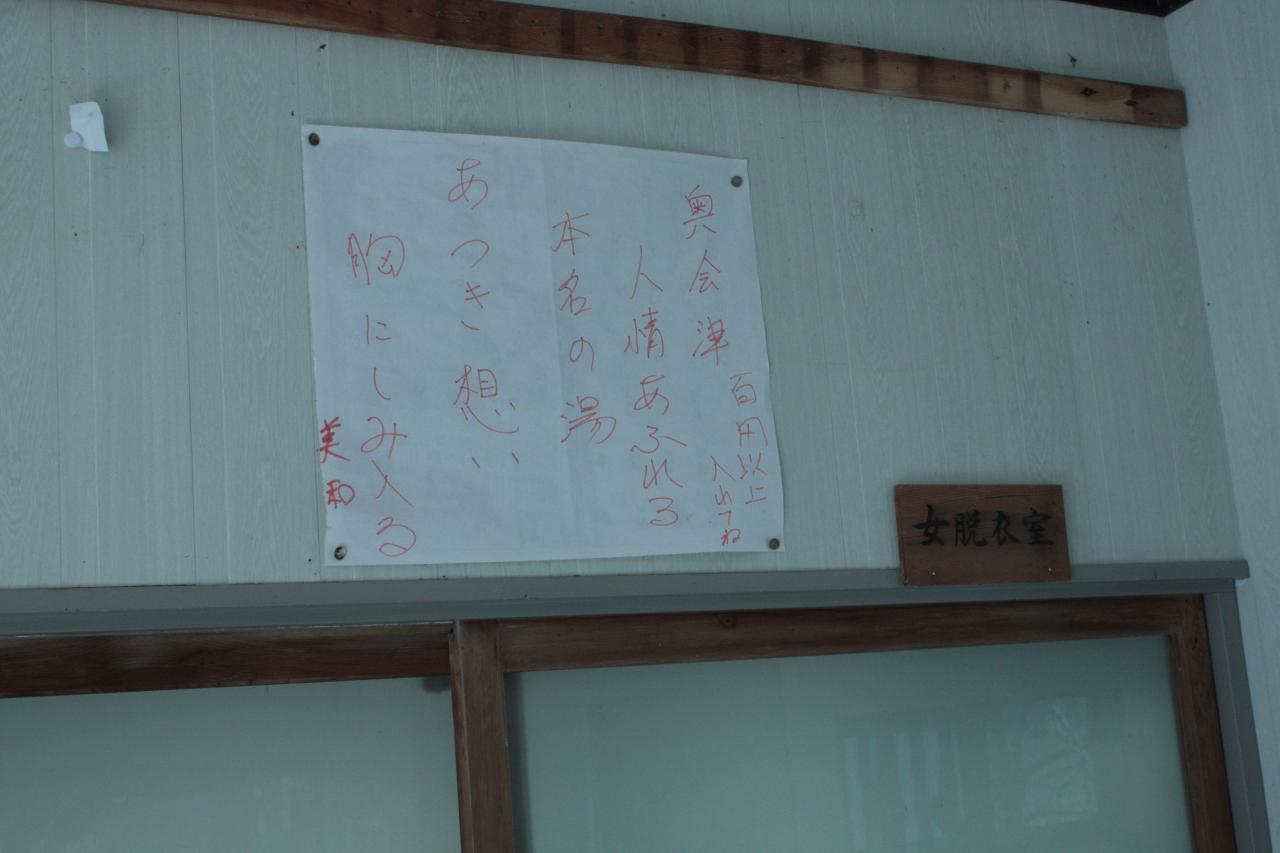 奥会津
百円以上
入れてね
人情あふれる
本名の湯
あつき想い
胸にしみ入る
美和
女脱衣室